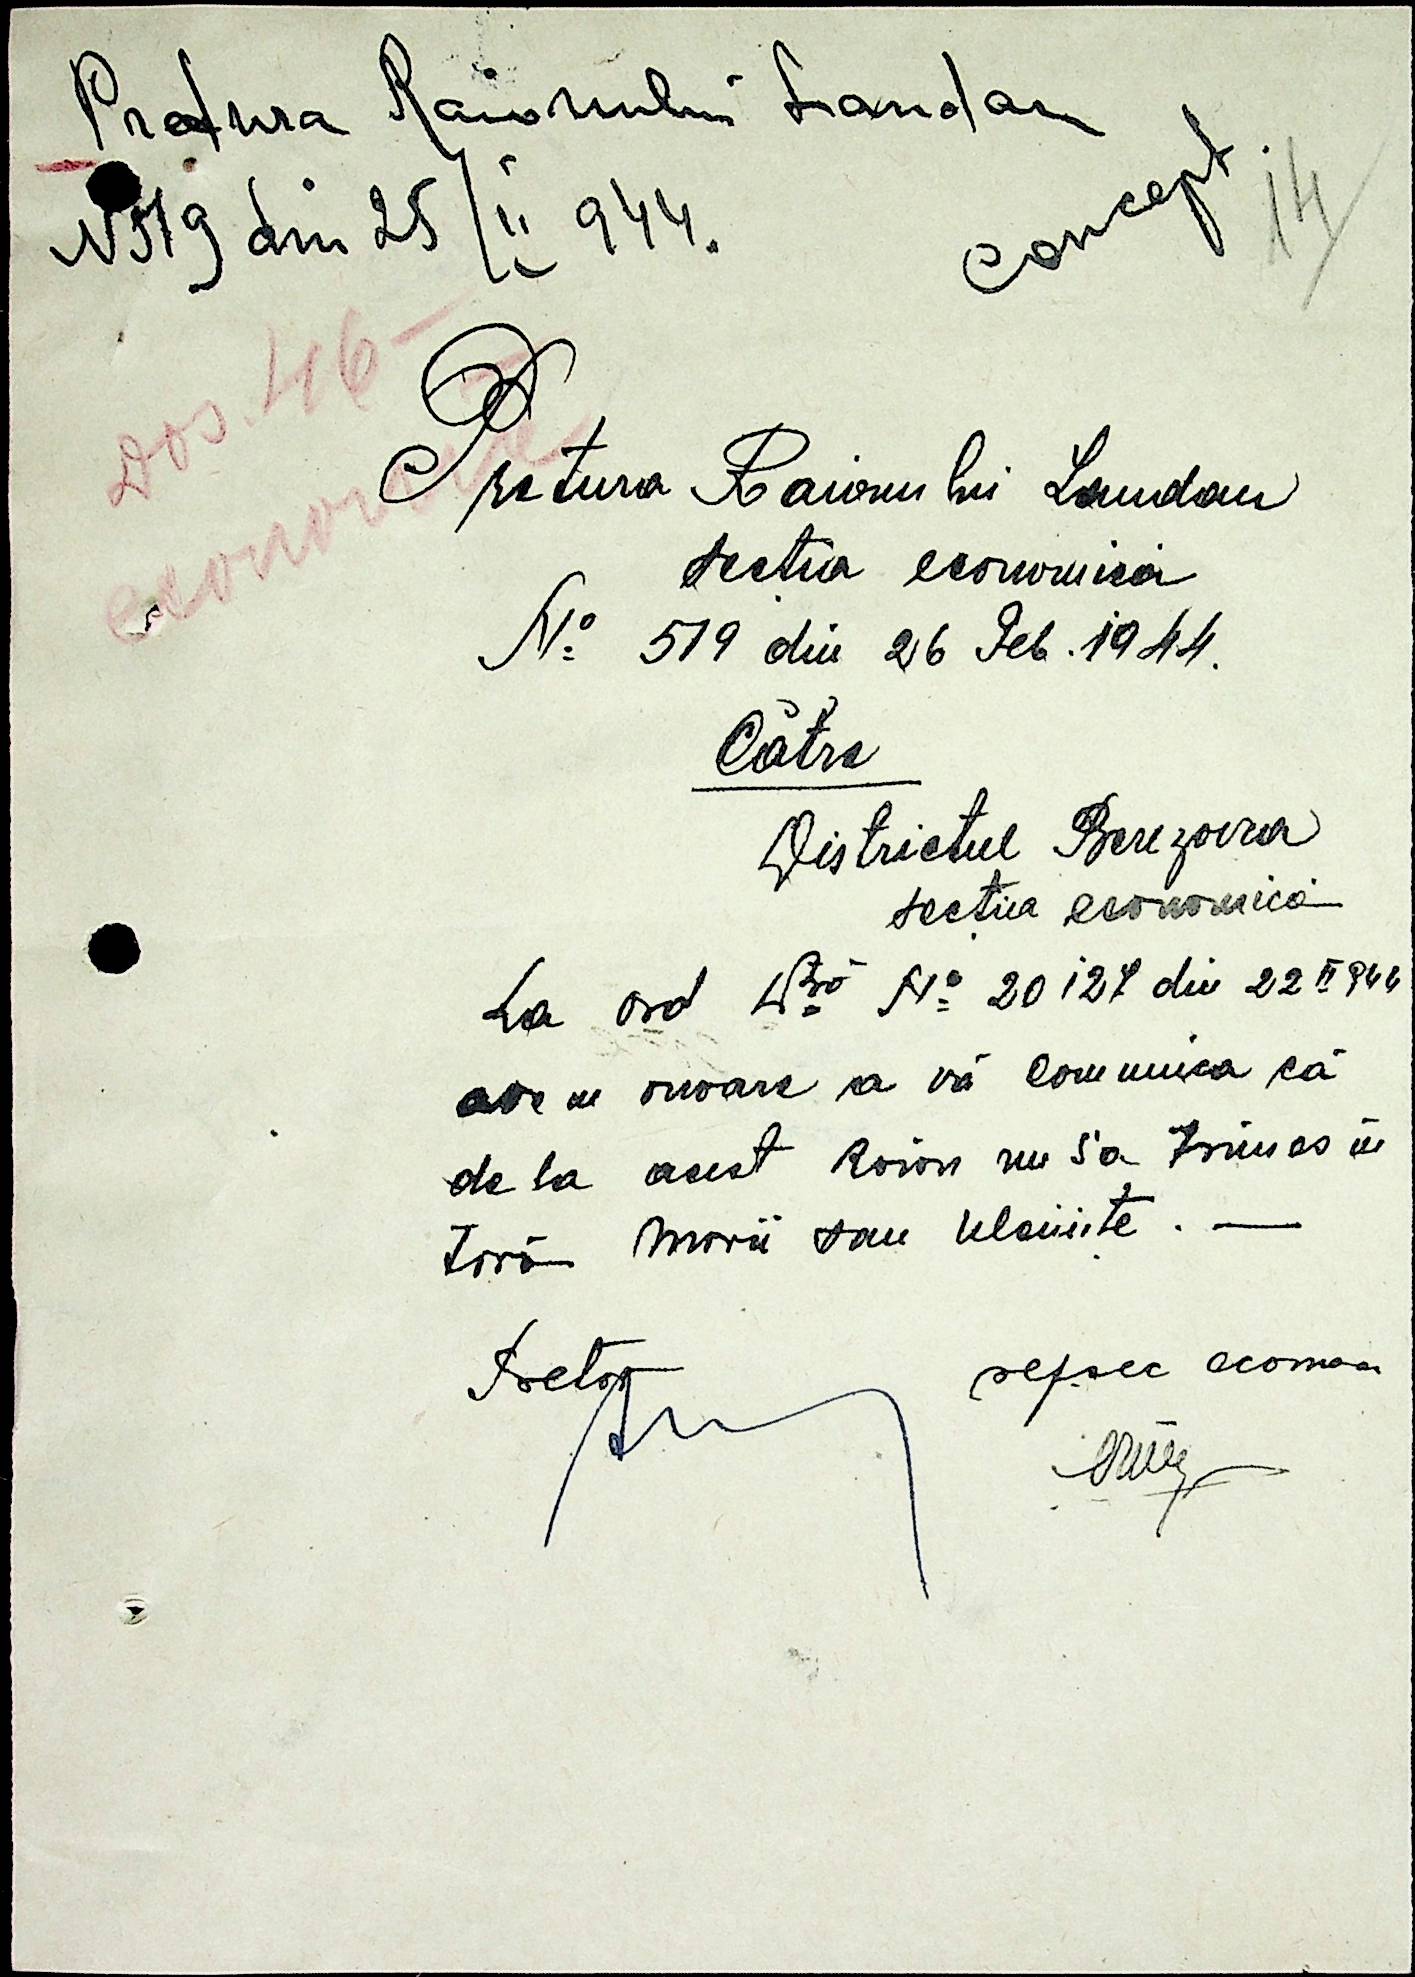 Pretura Raionului Landau
N 519 din 25/II 944.
concept
14
Dos. 46
economic
Pretura Raionului Landau
secția economică
No 519 din 26 Feb. 1944.
Către
Districtul Berezovca
secția economică
La ord Dvră No 20127 din 22 II 944
avem onoare a vă comunica că
de la acest Raion nu s'a trimes în
țară morii sau uleinițe. —
Pretor
sef sec econom